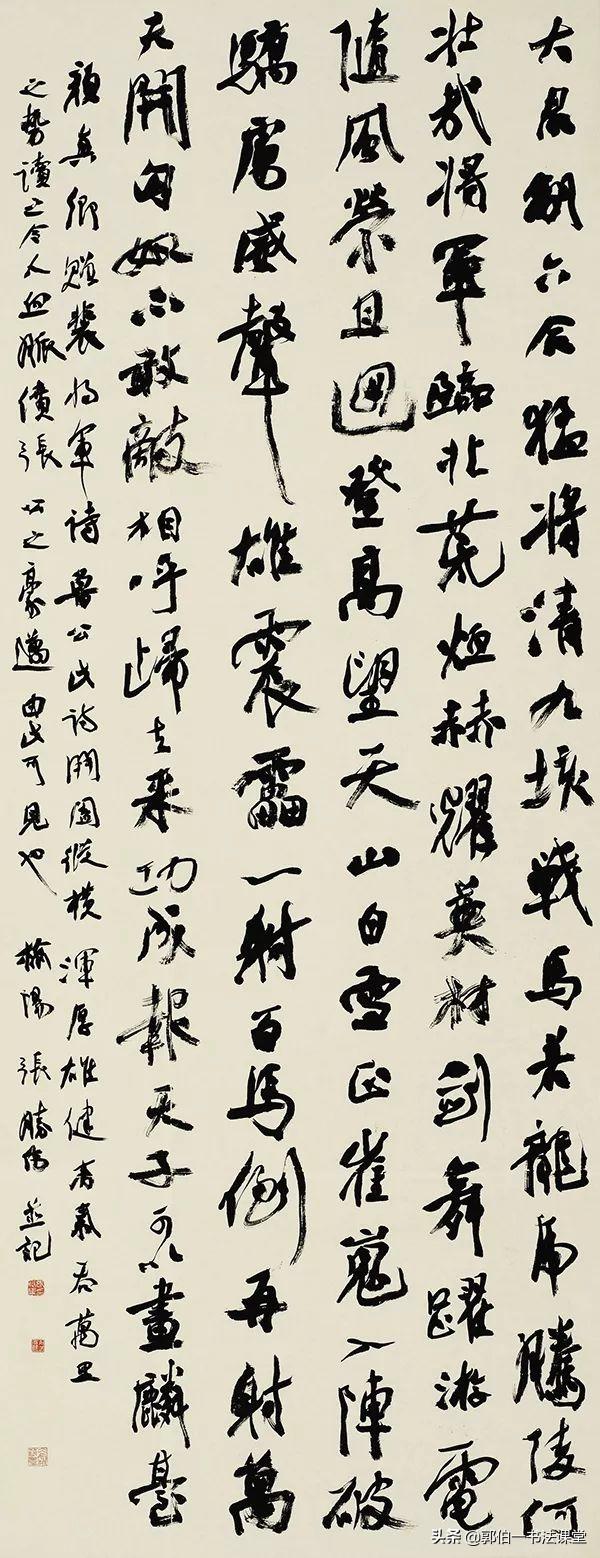 大君制六合猛將清九垓戰馬若龍虎騰陵何
壯哉將軍臨北荒烜赫耀英材劍舞躍游電
隨風縈且迴登高望天山白雪正崔嵬入陣破
驕虜威聲雄震雷一射百馬倒再射萬
夫開匈奴不敢敵相呼歸去來功成報天子可以畫麟臺
顏真卿贈裴將軍詩魯公此詩開闔縱橫渾厚雄健有氣吞萬里
之勢讀之令人血脈僨張公之豪邁由此可見也 榆陽 張勝偉並記
头条 @郭伯一书法课堂